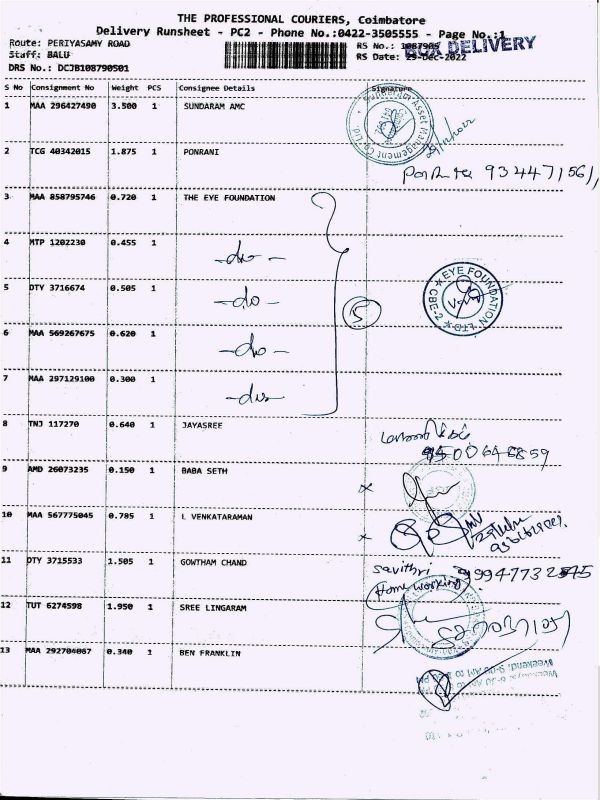 THE PROFESSIONAL COURIERS, Coimbatore
Delivery Runsheet - PC2 - Phone No.:0422-3505555 - Page No.:1
Route: PERIYASAMY ROAD
RS No.: 1087905
BOX DELIVERY
Staff: BALU
RS Date: 29-Dec-2022
DRS No.: DCJB108790501
S No Consignment No Weight PCS Consignee Details Signature
1 MAA 296427490 3.500 1 SUNDARAM AMC
29/12/2022
2 TCG 40342015 1.875 1 PONRANI
3 MAA 858795746 0.720 1 THE EYE FOUNDATION
4 MTP 1202230 0.455 1 -do-
5 DTY 3716674 0.505 1 -do-
5
EYE FOUNDATION LTD CBE-2
6 MAA 569267675 0.620 1 -do-
7 MAA 297129100 0.300 1 -do-
8 TNJ 117270 0.640 1 JAYASREE
9 AMD 26073235 0.150 1 BABA SETH
10 MAA 567775045 0.785 1 L VENKATARAMAN
11 DTY 3715533 1.505 1 GOWTHAM CHAND
savithri
Home working
12 TUT 6274598 1.950 1 SREE LINGARAM
13 MAA 292704087 0.340 1 BEN FRANKLIN